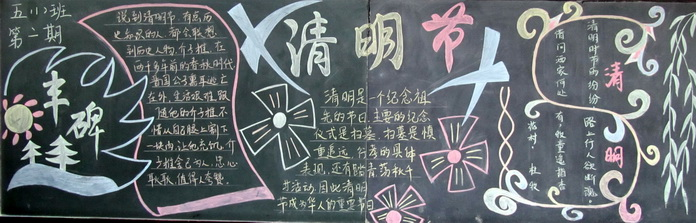 五(1)班
第二期
丰碑
说到清明节,有点历
史知识的人,都会联想
到历史人物介子推,在
两千多年前的春秋时代
晋国公子重耳逃亡
在外,生活艰难,跟
随他的介子推不
惜从自己腿上割下
一块肉让他充饥,介
子推舍己为人,忠心
耿耿,值得人夸赞。
清明节
清明是一个纪念祖
先的节日,主要的纪念
仪式是扫墓,扫墓是慎
重追远、行孝的具体
表现,还有踏青荡秋千
等活动,因此清明
节成为华人的重要节日
清明
清明时节雨纷纷
路上行人欲断魂。
借问酒家何处
有
牧童遥指杏
花村
杜牧